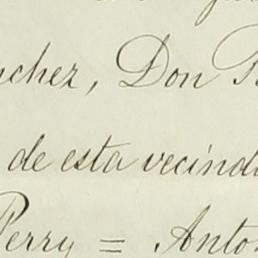 nchez, Don
de esta vecinda
Perry = Anton